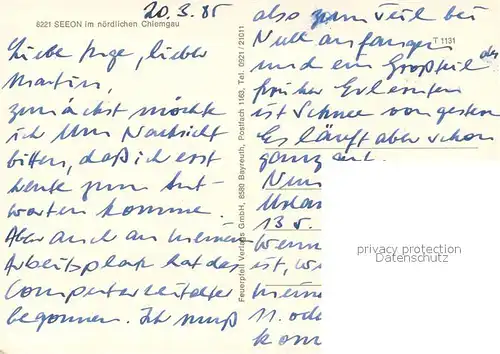 20.3.85
8221 SEEON im nördlichen Chiemgau
Liebe Inge, lieber
Martin,
zunächst möchte
ich um Nachricht
bitten, daß ich erst
heute zum Ant-
worten komme.
Aber auch an meinem
Arbeitsplatz hat das
Computerzeitalter
begonnen. Ich muß
Feuerpfeil Verlags GmbH, 8580 Bayreuth, Postfach 1163, Tel. 0921 / 21011
also zum Teil bei
Null anfangen
T 1131
und ein Großteil des
früher Erlernten
ist Schnee von gestern
Es läuft aber schon
ganz gut.
Nun
Urlau
13.
Wenn
ist, w
meine
11. ode
kom
privacy protection
Datenschutz